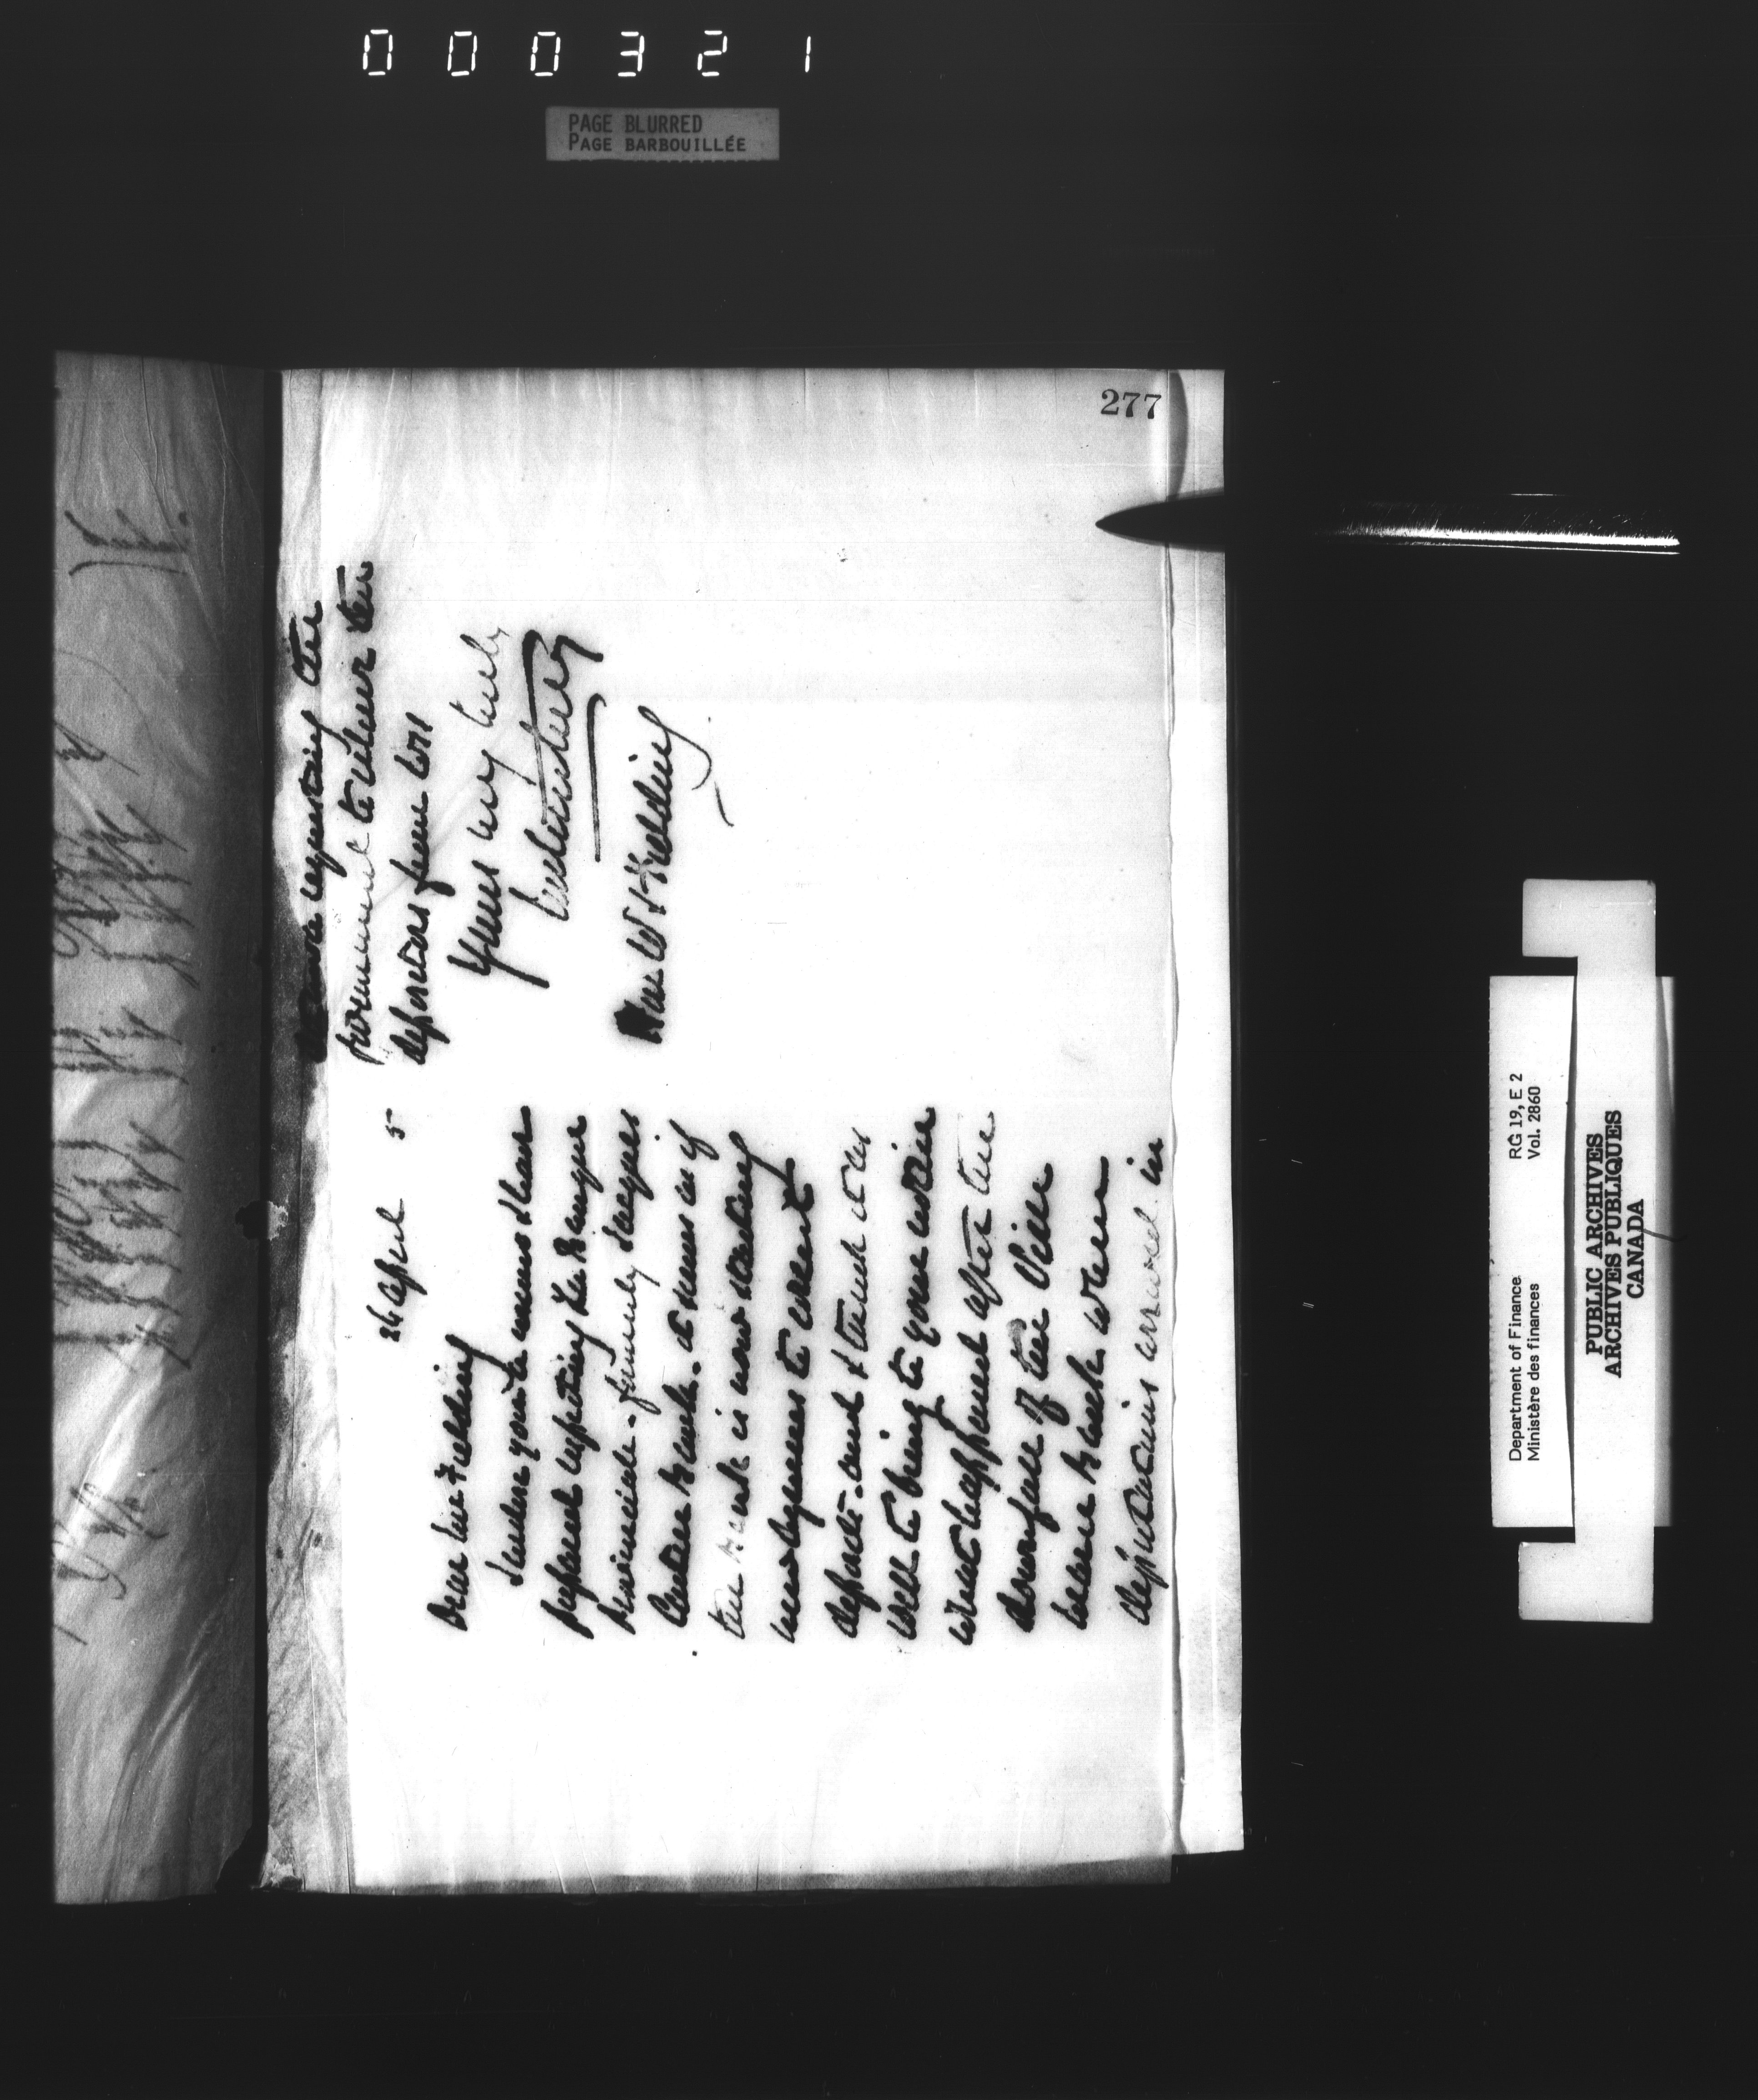 000321
PAGE BLURRED
PAGE BARBOUILLÉE
277
26 April 5
Dear Mr Fielding
I enclose you a memo I have
prepared respecting La Banque
Provinciale - formerly Jacques
Cartier Bank. It seems as if
the Bank is now sending
to
deposit - and I think it as
well to bring to your notice
what happened after the
downfall of the Ville
Marie Bank when
deputations arrived in
requesting the
Government to relieve the
depositors from loss
Yours very truly
Hon W S Fielding
Department of Finance
Ministère des finances
RG 19, E 2
Vol. 2860
PUBLIC ARCHIVES
ARCHIVES PUBLIQUES
CANADA